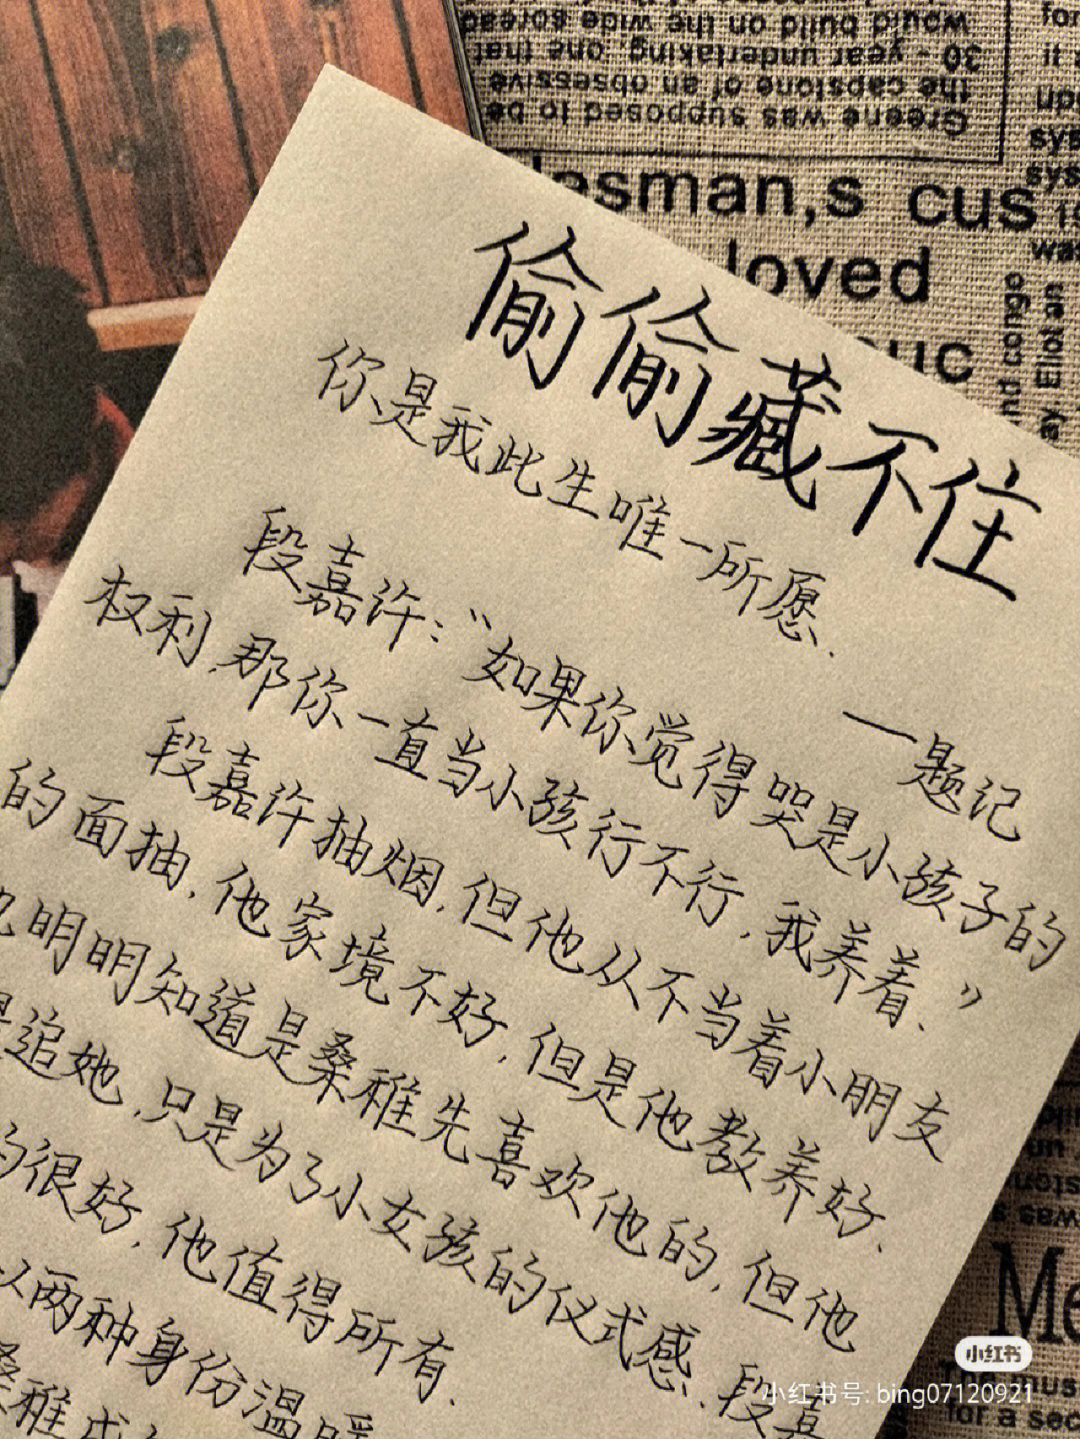 偷偷藏不住
你是我此生唯一所愿.
一题记
段嘉许:“如果你觉得哭是小孩子的
权利,那你一直当小孩行不行,我养着.”
段嘉许抽烟,但他从不当着小朋友
的面抽,他家境不好,但是他教养好.
明明知道是桑稚先喜欢他的,但他
追她,只是为了小女孩的仪式感.段嘉
很好,他值得所有.
两种身份温暖
桑稚成
would build on the wide spread
30 - year undertaking, one that
the capstone of an obsessive
Greene was supposed to be
esman,s cus
loved
uc
nd congo
ay. Eliot an
for
it
up
sys
sys
19
was
Me
The mus
for a sec
小红书
小红书号: bing07120921